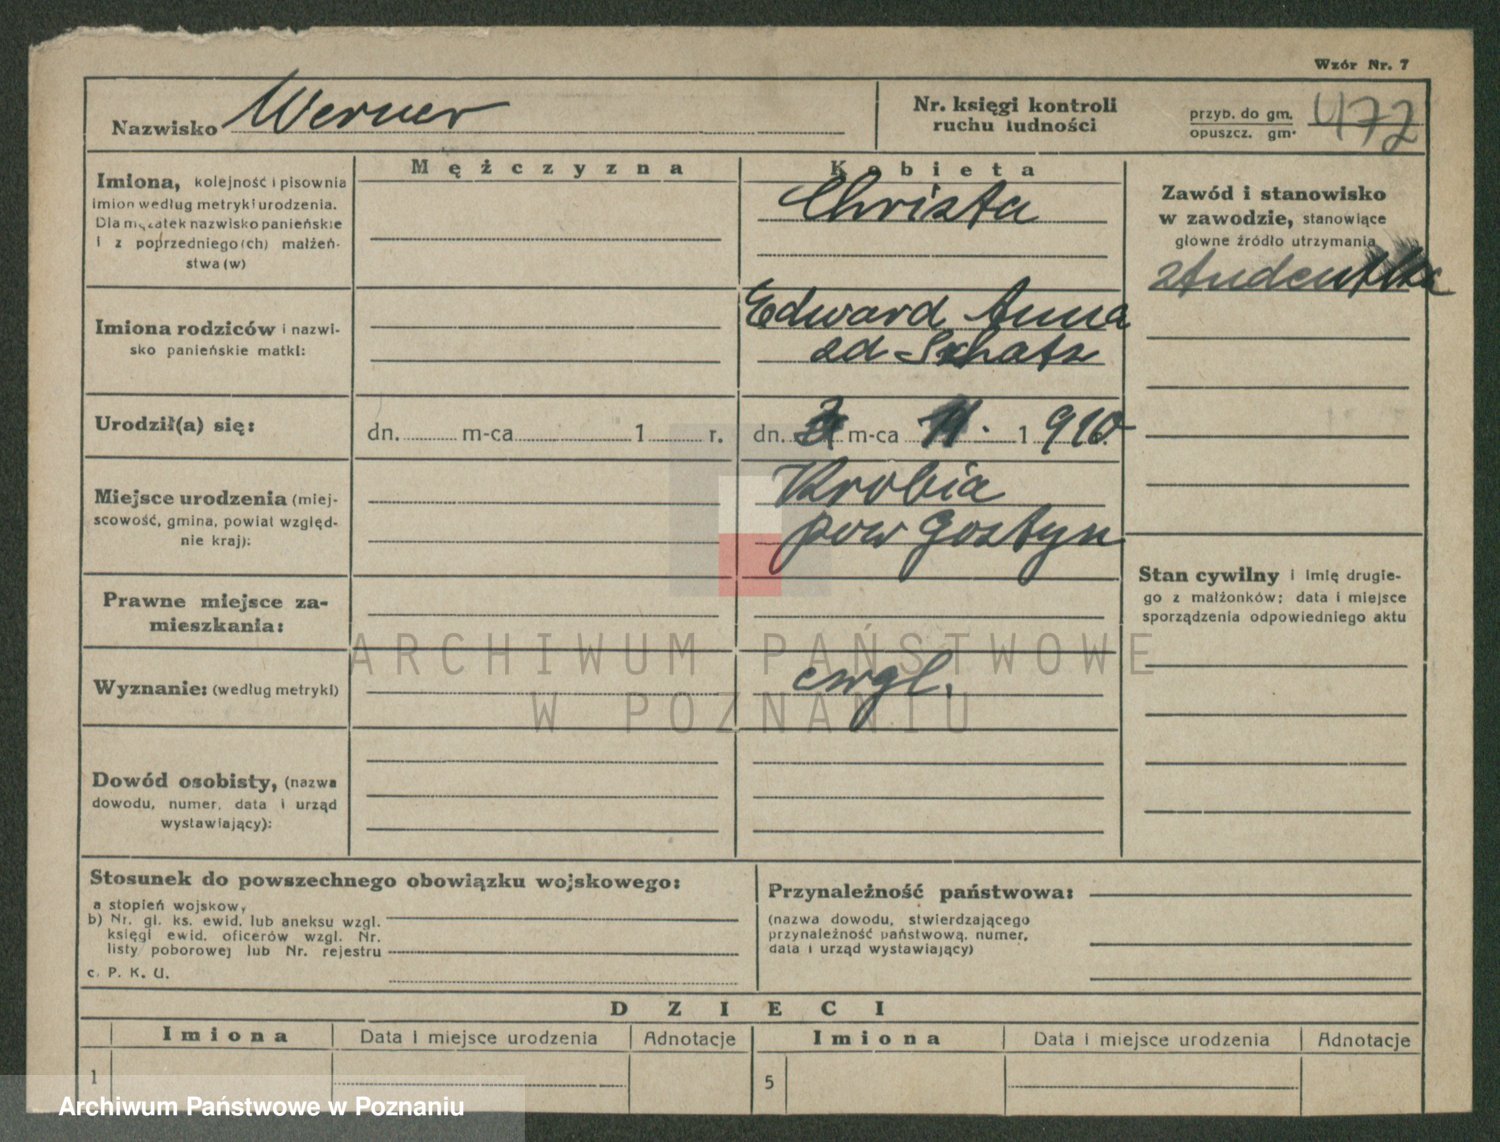 Wzór Nr. 7
Nazwisko Werner
Nr. księgi kontroli
ruchu ludności
przyb. do gm.
opuszcz. gm.
472
Mężczyzna
Kobieta
Imiona, kolejność i pisownia
imion według metryki urodzenia.
Dla mężatek nazwisko panieńskie
i z poprzedniego(ch) małżeń-
stwa (w)
Christa
Zawód i stanowisko
w zawodzie, stanowiące
główne źródło utrzymania
studentka
Imiona rodziców i nazwi-
sko panieńskie matki:
Edward Anna
zd Schatz
Urodził(a) się:
dn. m-ca 1 r.
dn. m-ca 11. 1 910
Miejsce urodzenia (miej-
scowość, gmina, powiat względ-
nie kraj):
Krobia
pow Gostyn
Stan cywilny i imię drugie-
go z małżonków; data i miejsce
sporządzenia odpowiedniego aktu
Prawne miejsce za-
mieszkania:
Wyznanie: (według metryki)
ewgl.
ARCHIWUM PAŃSTWOWE
W POZNANIU
Dowód osobisty, (nazwa
dowodu, numer, data i urząd
wystawiający):
Stosunek do powszechnego obowiązku wojskowego:
a stopień wojskow,
b) Nr. gl. ks. ewid. lub aneksu wzgl.
księgi ewid. oficerów wzgl. Nr.
listy poborowej lub Nr. rejestru
c. P. K. U.
Przynależność państwowa:
(nazwa dowodu, stwierdzającego
przynależność państwową, numer,
data i urząd wystawiający)
DZIECI
Imiona
Data i miejsce urodzenia
Adnotacje
Imiona
Data i miejsce urodzenia
Adnotacje
1
5
Archiwum Państwowe w Poznaniu